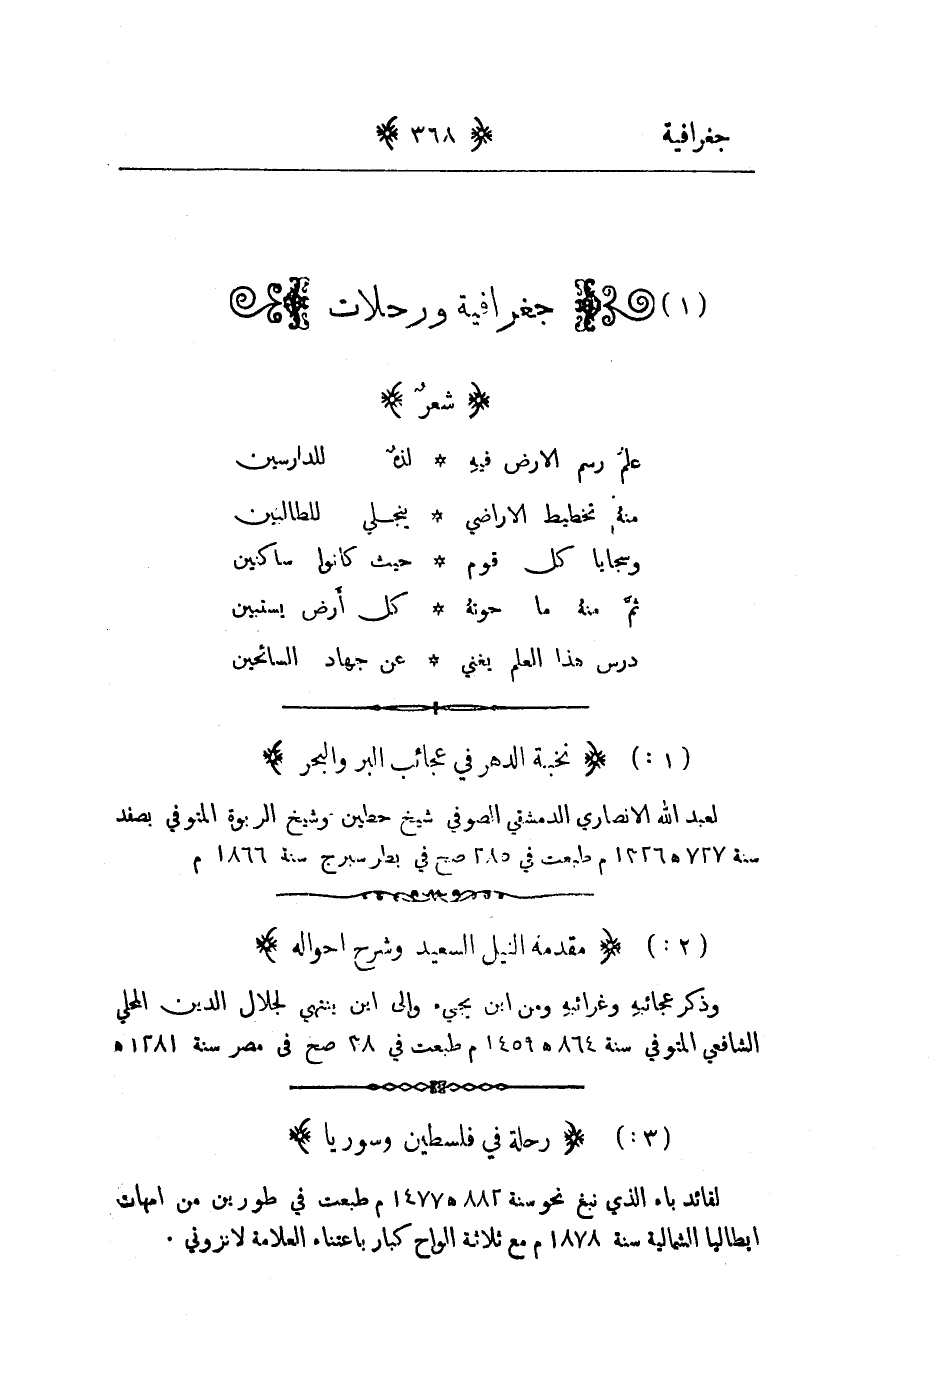 جغرافية ﴿ ٣٦٨ ﴾
(١) جغرافية ورحلات
﴿ شعرٌ ﴾
علمُ رسم الارض فيهِ * لذةٌ للدارسين
منهُ تخطيط الاراضي * ينجـلي للطالبين
وسجايا كل قوم * حيث كانوا ساكنين
ثمَّ منهُ ما حوتهُ * كل أَرض يستبين
درس هذا العلم يغني * عن جهاد السائحين
(١ :) ﴿ نخبة الدهر في عجائب البر والبحر ﴾
لعبد الله الانصاري الدمشقي الصوفي شيخ حطين وشيخ الربوة المتوفي بصفد
سنة ٧٢٧ ه ١٣٢٦ م طبعت في ٢٨٥ صح في بطرسبرج سنة ١٨٦٦ م
(٢ :) ﴿ مقدمة النيل السعيد وشرح احواله ﴾
وذكر عجائبهِ وغرائبهِ ومن اين يجيء والى اين ينتهي لجلال الدين المحلي
الشافعي المتوفي سنة ٨٦٤ ه ١٤٥٩ م طبعت في ٢٨ صح فى مصر سنة ١٢٨١ ه
(٣ :) ﴿ رحلة في فلسطين وسوريا ﴾
لقائد باء الذي نبغ نحو سنة ٨٨٢ ه ١٤٧٧ م طبعت في طورين من امهات
ايطاليا الشمالية سنة ١٨٧٨ م مع ثلاثة الواح كبار باعتناء العلامة لانزوني ٠